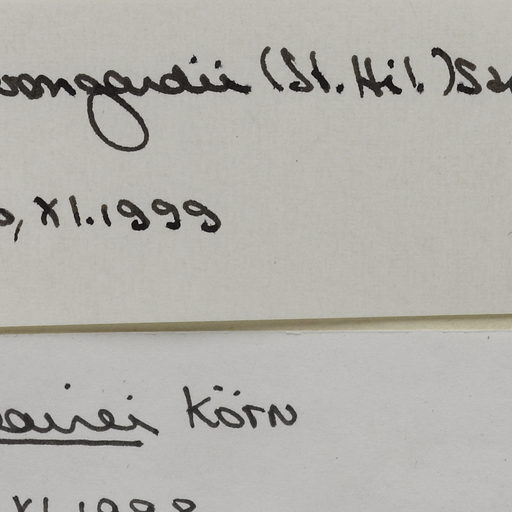 ongardii (St. Hil.) Sa
o, XI.1999
airei Körn
XI.1998